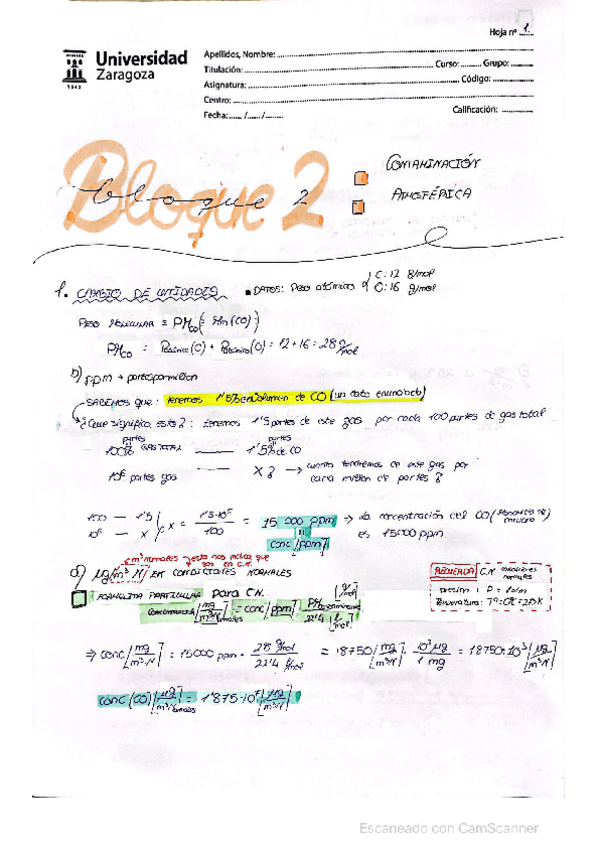 Hoja nº 1
Universidad
Zaragoza
1542
Apellidos, Nombre:
Titulación: Curso: Grupo:
Asignatura: Código:
Centro:
Fecha: / / Calificación:
Bloque 2
bloque 2
CONTAMINACIÓN
ATMOSFÉRICA
1. CAMBIO DE UNIDADES ▪ DATOS: Peso atómico C: 12 g/mol
O: 16 g/mol
PESO MOLECULAR = PM(CO)
PM CO = Patómico(C) + Patómico(O) = 12 + 16 = 28 g/mol
b) ppm → partes por millón
SABEMOS que: tenemos 1'5% en volumen de CO (un dato enunciado)
¿Qué significa esto?: tenemos 1'5 partes de este gas por cada 100 partes de gas total
partes partes
100% GAS TOTAL —— 1'5% de CO
10⁶ partes gas —— X? → cuanto tendremos de este gas por
cada millón de partes?
100 — 1'5
10⁶ — x } x = 1'5·10⁶ / 100 = 15 000 ppm → la concentración del CO
conc [ppm] es 15000 ppm
a) µg/m³N EN CONDICIONES NORMALES
m³ normales → esto nos indica que
son en C.N.
RECUERDA C.N. condiciones
normales
Presión: P = 1 atm
Temperatura: Tª = 0ºC = 273K
FORMULITA PARTICULAR para C.N.
concentración [mg/m³ normales] = conc [ppm] · PM contaminante [g/mol] / 22'4 [l/mol]
⇒ conc [mg/m³N] = 15000 ppm · 28 g/mol / 22'4 l/mol = 18750 [mg/m³N] · 10³ µg / 1 mg = 18750·10³ [µg/m³N]
conc (CO) [µg/m³N normales] = 1'875·10⁷ [µg/m³N]
Escaneado con CamScanner